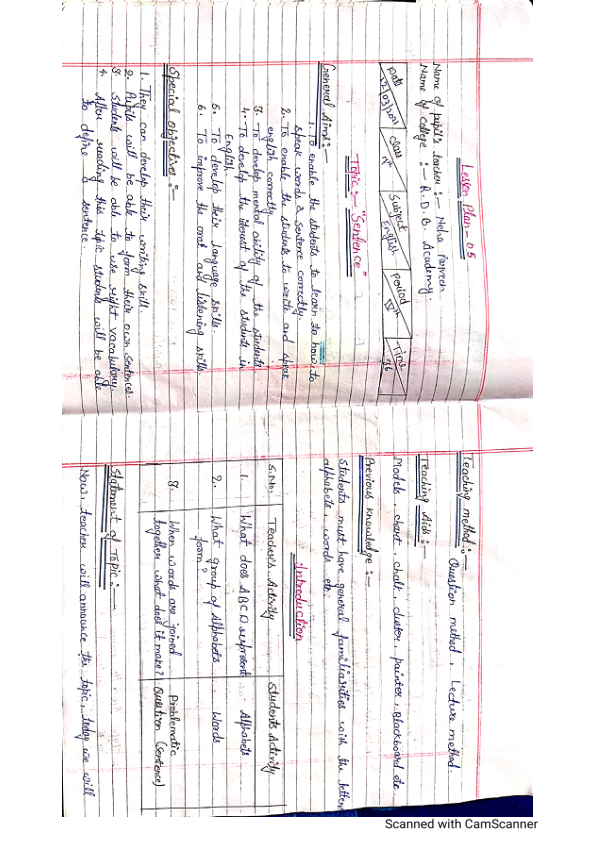 Lesson Plan - 05
Name of pupil's teacher :- Neha Parveen.
Name of College :- R.D.B. Academy.
Date Class Subject Period Time
English
Topic :- "Sentence"
General Aims :-
1. To enable the students to learn to how to
speak words & sentence correctly.
2. To enable the students to write and speak
english correctly
3. To develop mental ability of the students.
4. To develop the interest of the students in
English.
5. To develop their language skills.
6. To improve the oral and listening skills.
Special Objectives :-
1. They can develop their writing skill.
2. Pupils will be able to form their own sentences.
3. Students will be able to use right vacabulary.
4. After reading this topic students will be able
to define a sentence.
Teaching method :-
Question method, Lecture method.
Teaching Aids :-
Models, chart, chalk, duster, painter, Blackboard etc.
Previous Knowledge :-
Students must have general familiarities with the letter
alphabets, words etc.
Introduction
S.No. Teacher's Activity Students Activity
1. What does ABCD represent Alphabets
2. What group of Alphabets Words
form?
3. When words are joined Problematic
together what does it make? Question (Sentence)
Statement of Topic :-
Now, teacher will announce the topic, today we will
Scanned with CamScanner